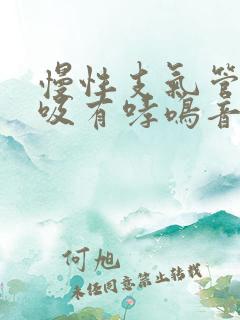 慢性支氣管
吸有哮鳴音
何旭
未经同意禁止转载